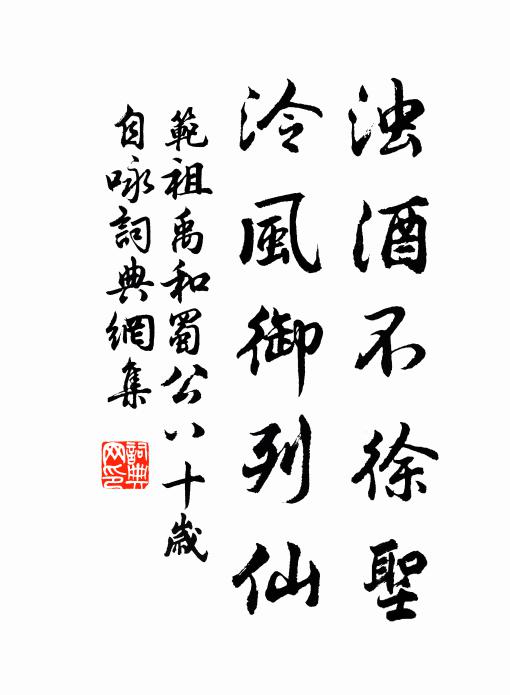 浊酒不徐聖
泠風御列仙
範祖禹和蜀公八十歲
自咏詞典網集
詞典网印